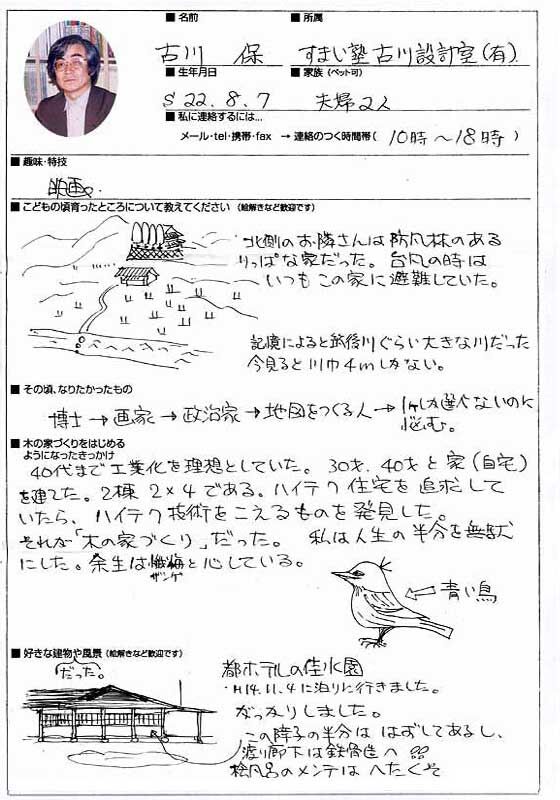 ■ 名前 ■ 所属
古川 保 すまい塾古川設計室(有)
■ 生年月日 ■ 家族(ペット可)
S22.8.7 夫婦2人
■ 私に連絡するには...
メール・tel・携帯・fax → 連絡のつく時間帯( 10時〜18時 )
■ 趣味・特技
映画
■ こどもの頃育ったところについて教えてください (絵解きなど歓迎です)
北側のお隣さんは防風林のある
りっぱな家だった。台風の時は
いつもこの家に避難していた。
記憶によると筑後川ぐらい大きな川だった
今見ると川巾4mしかない。
■ その頃、なりたかったもの
博士→画家→政治家→地図をつくる人→1件しか選べないのに
悩む。
■ 木の家づくりをはじめる
ようになったきっかけ
40代まで工業化を理想としていた。30才、40才と家(自宅)
を建てた。2棟 2×4である。ハイテク住宅を追求して
いたら、ハイテク技術をこえるものを発見した。
それが「木の家づくり」だった。 私は人生の半分を無駄
にした。余生は懺悔と心している。
ザンゲ
青い鳥
■ 好きな建物や風景 (絵解きなど歓迎です)
だった。
都ホテルの佳水園
H14.11.4に泊りに行きました。
がっかりしました。
この障子の半分は はずしてあるし、
渡り廊下は鉄骨造へ
桧風呂のメンテは へたくそ